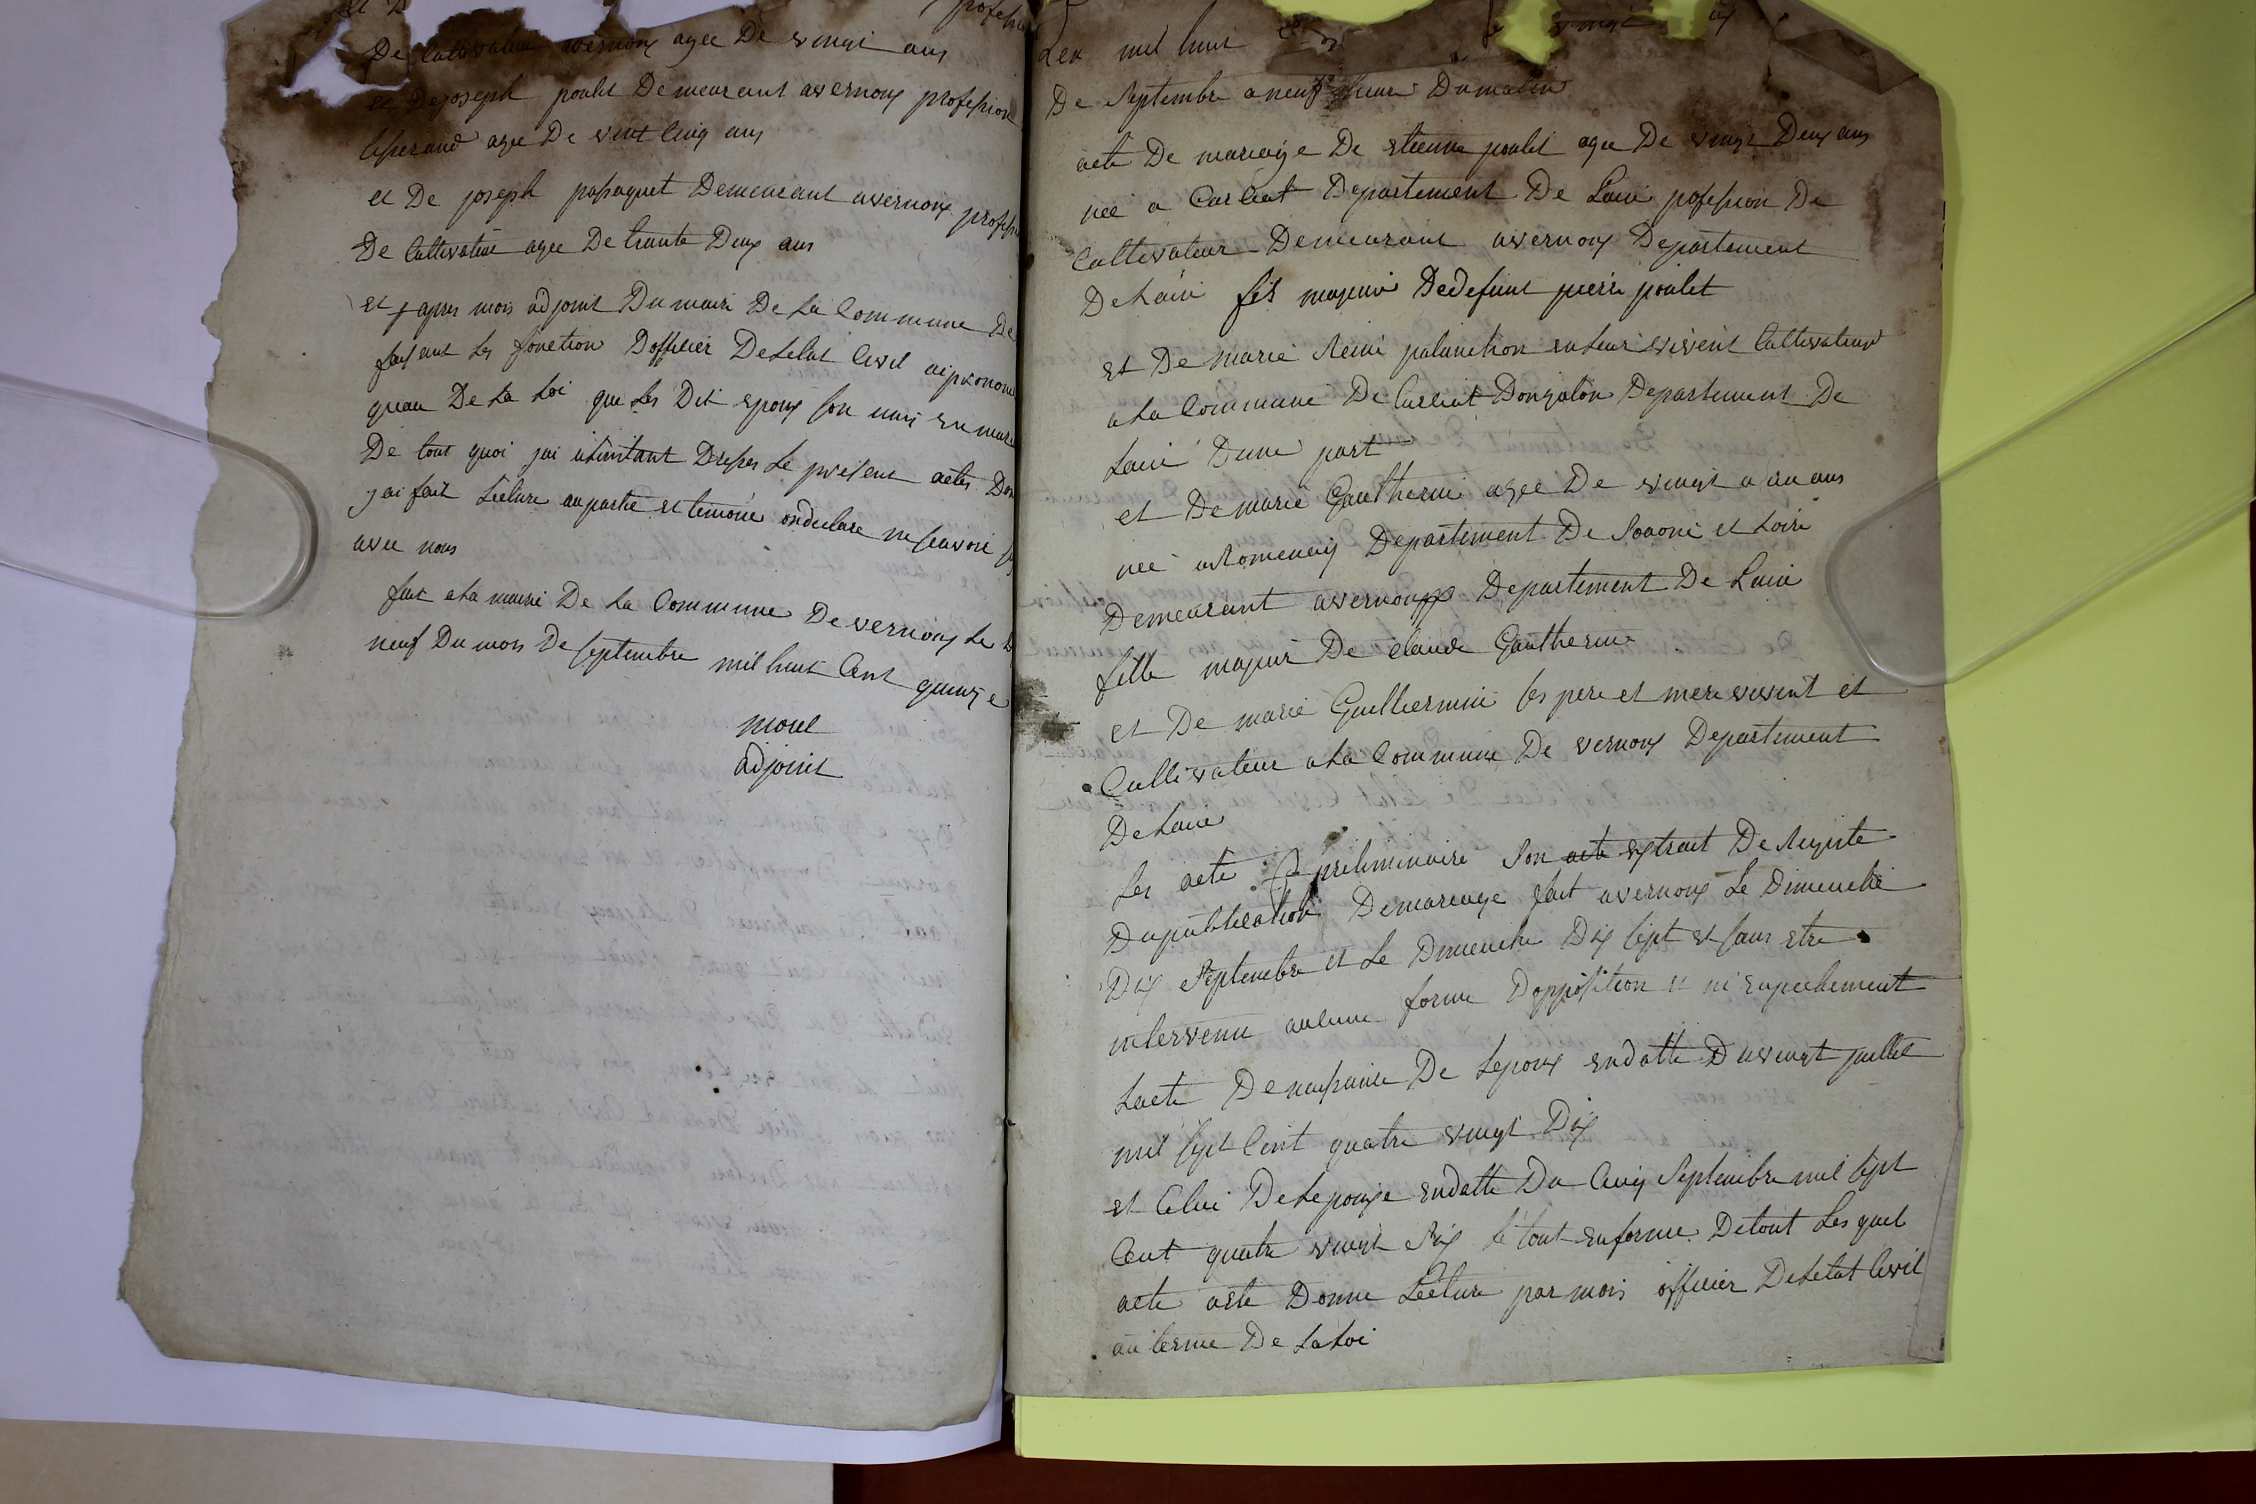 De Cultivateur avernoux agee De vingt ans
et Dejoseph poulet Demeurant avernoux profession
tisserand agee De vint Cinq ans
et De joseph passaquet Demeurant avernoux profess
De Cultivateur agee De trante Deux ans
et apres mois adjoint Du maire De La Commune De
faisant Les fonction Dofficier De Letat Civil ai prononc
quau De La Loi que Les Dit epoux son unis en mari
De tout quoi jai alinstant Dresses Le present actes Don
jai fait Lecture au partie et temoins ondeclare ne scavoir
avec nous
fait a La mairie De La Commune De vernoux Le
neuf Du mois De septembre mil huit Cent quinze
morel
adjoint
Lan mil huit vingt
De Septembre a neuf heure Dumatin
acte De mariage De etienne poulet agee De vingt Deux ans
nee a Curciat Departement De Lain pofession De
Cultivateur Demeurant avernoux Departement
De Lain fils majeur Dedefunt pierre poulet
et De marie Reine palanchon enleur vivent Cultivateur
a La Commune De Curciat Dongalon Departement De
Lain Dune part
et De marie Gautherin agee De vingt a un ans
nee a Romenay Departement De Soaone et Loire
Demeurant avernoux Departement De Lain
fille majeur De claude Gautherin
et De marie Guillermin ses pere et mere vivent et
Cultivateur a La Commune De vernoux Departement
De Lain
Les acte preliminaire Son acte extrait De Registe
Dupublication Demareage fait avernoux Le Dimenche
Dix Septembre et Le Dimenche Dix sept et sans etre
intervenu aucune forme Dopposition ni Empechement
Lacte Denaissance De Lepoux endatte Duvingt juillet
mil sept Cent quatre vingt Dix
et Celui De Lepouze endatte Du Cinq Septembre mil sept
Cent quatre vingt Six Le tout enforme. Detout Les quel
acte aete Donne Lecture par mois officier De Letat Civil
au terme De La Loi